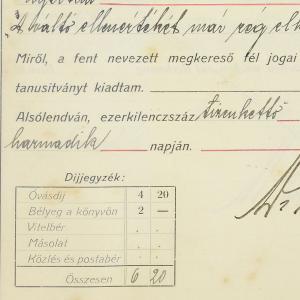 "A váltó ellenértékét már rég elk
Miről, a fent nevezett megkereső fél jogai
tanusitványt kiadtam.
Alsólendván, ezerkilencszáz tizenkettő
harmadik napján.
Díjjegyzék:
Óvásdij 4 20
Bélyeg a könyvön 2 —
Vitelbér . .
Másolat . .
Közlés és postabér . .
Összesen 6 20